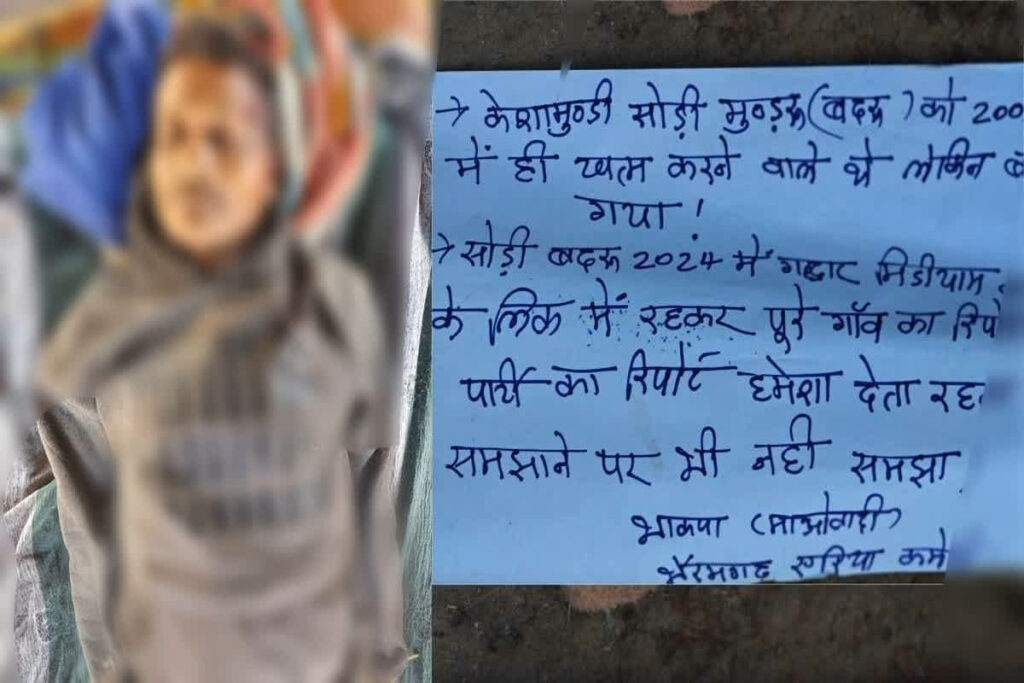 → केशामुण्डी सोड़ी मुण्ड़रू (बदरू) को 200
में ही खत्म करने वाले थे लेकिन
गया!
→ सोड़ी बदरू 2024 में गद्दार मिडीयाम
के लिंक में रहकर पूरे गाँव का रिपो
पार्टी का रिपोर्ट हमेशा देता रहा
समझाने पर भी नही समझा
भाकपा (माओवादी)
भैरमगढ़ एरिया कमे